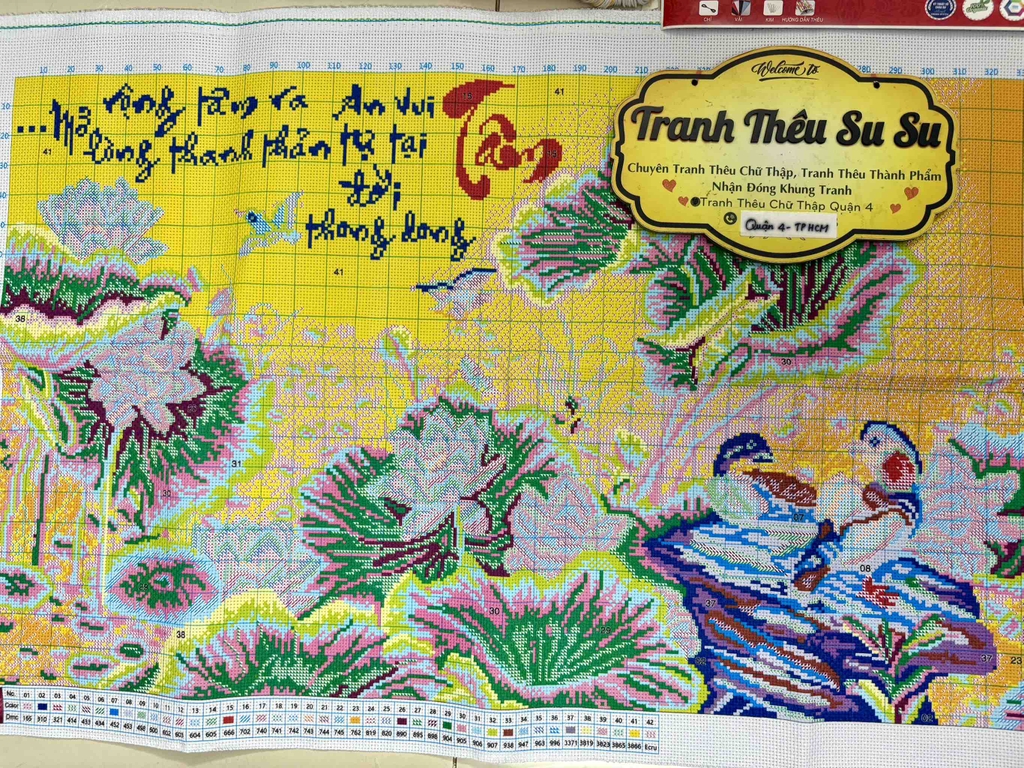 CHỈ VẢI KIM HƯỚNG DẪN THÊU
10 20 30 40 50 60 70 80 90 100 110 120 130 140 150 160 170 180 190 200 210 220 300 310 320
Welcome to
Tranh Thêu Su Su
Chuyên Tranh Thêu Chữ Thập, Tranh Thêu Thành Phẩm
Nhận Đóng Khung Tranh
Tranh Thêu Chữ Thập Quận 4
Quận 4 - TP HCM
Tâm
rộng tâm ra An vui
lòng thanh thản tự tại
tới
thong dong
10
20
30
41
15
41
41
36
31
30
30
38
30
08
47
47
23
No. 01 02 03 04 05 06 07 08 09 10 11 12 13 14 15 16 17 18 19 20 21 22 23 24 25 26 27 28 29 30 31 32 33 34 35 36 37 38 39 40 41 42
Color
604 605 666 702 740 741 742 743 744 745 762 772 819 820 890 895 898 904 905 906 907 938 947 963 996 3371 3819 3823 3865 3866 Ecru